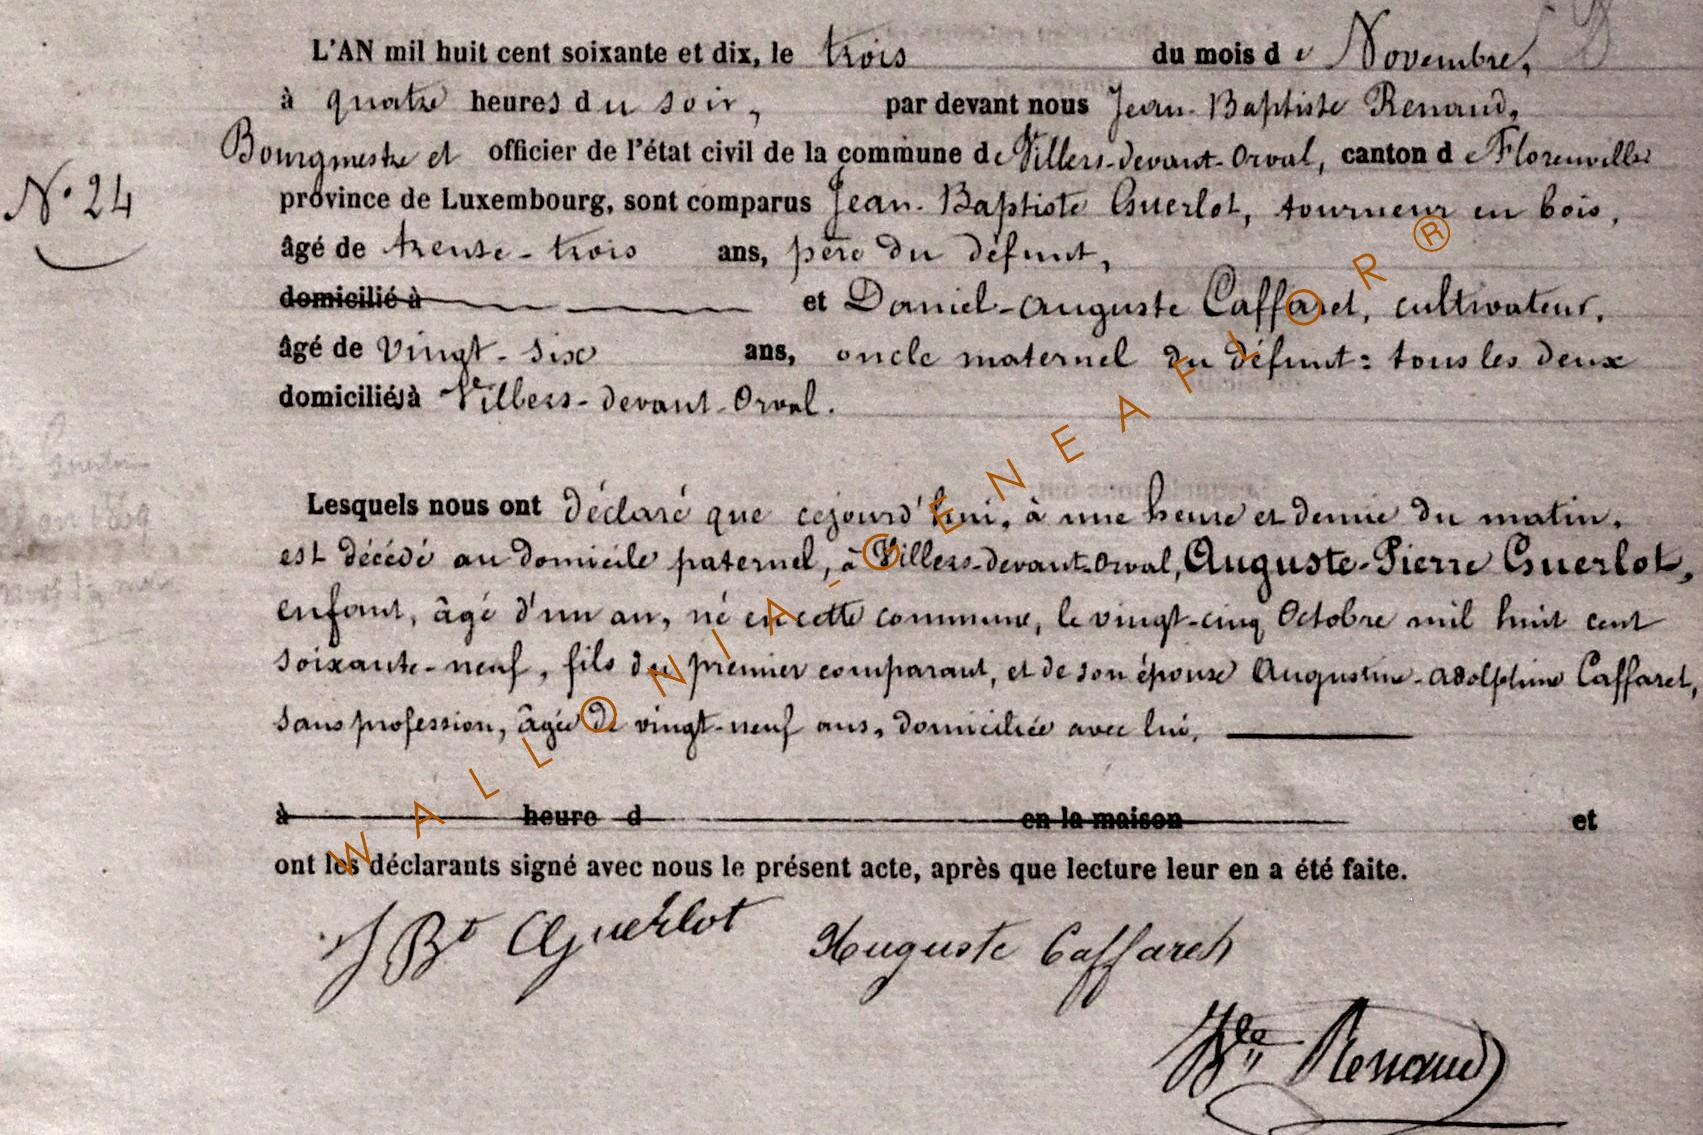 L'AN mil huit cent soixante et dix, le trois du mois de Novembre,
à quatre heures du soir, par devant nous Jean-Baptiste Renaud,
Bourgmestre et officier de l'état civil de la commune de Villers-devant-Orval, canton de Florenville
N° 24
province de Luxembourg, sont comparus Jean-Baptiste Guerlot, tourneur en bois,
âgé de trente-trois ans, père du défunt,
domicilié à et Daniel-Auguste Caffaret, cultivateur,
âgé de vingt-six ans, oncle maternel du défunt: tous les deux
domiciliés à Villers-devant-Orval.
Lesquels nous ont déclaré que cejourd'hui, à une heure et demie du matin,
est décédé au domicile paternel, à Villers-devant-Orval, Auguste-Pierre Guerlot,
enfant, âgé d'un an, né en cette commune, le vingt-cinq Octobre mil huit cent
soixante-neuf, fils du premier comparant, et de son épouse Augustine-Adolphine Caffaret,
sans profession, âgée de vingt-neuf ans, domiciliée avec lui.
à heure d en la maison et
ont les déclarants signé avec nous le présent acte, après que lecture leur en a été faite.
J Bt Guerlot Auguste Caffaret
Renaud
WALLONIA-GENEAFLOR®